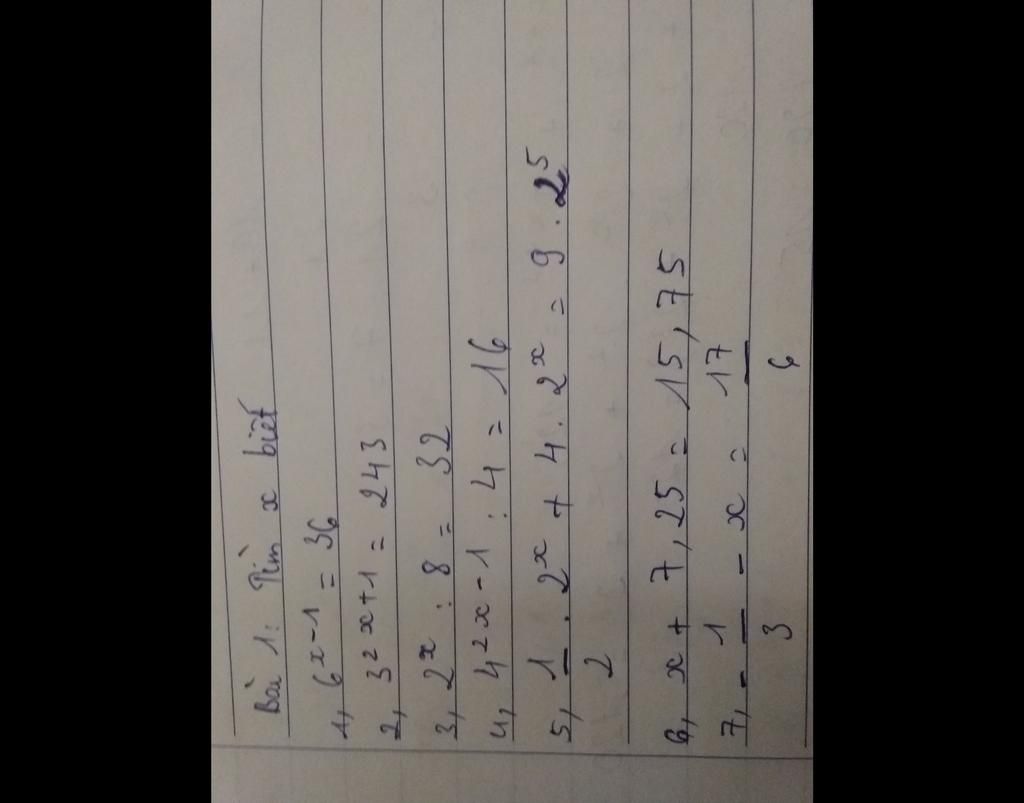 Bài 1: Tìm x biết
1, 6^x-1 = 36
2, 3^2x+1 = 243
3, 2^x : 8 = 32
4, 4^2x-1 : 4 = 16
5, 1/2 . 2^x + 4 . 2^x = 9 . 2^5
6, x + 7,25 = 15,75
7, -1/3 - x = 17/6